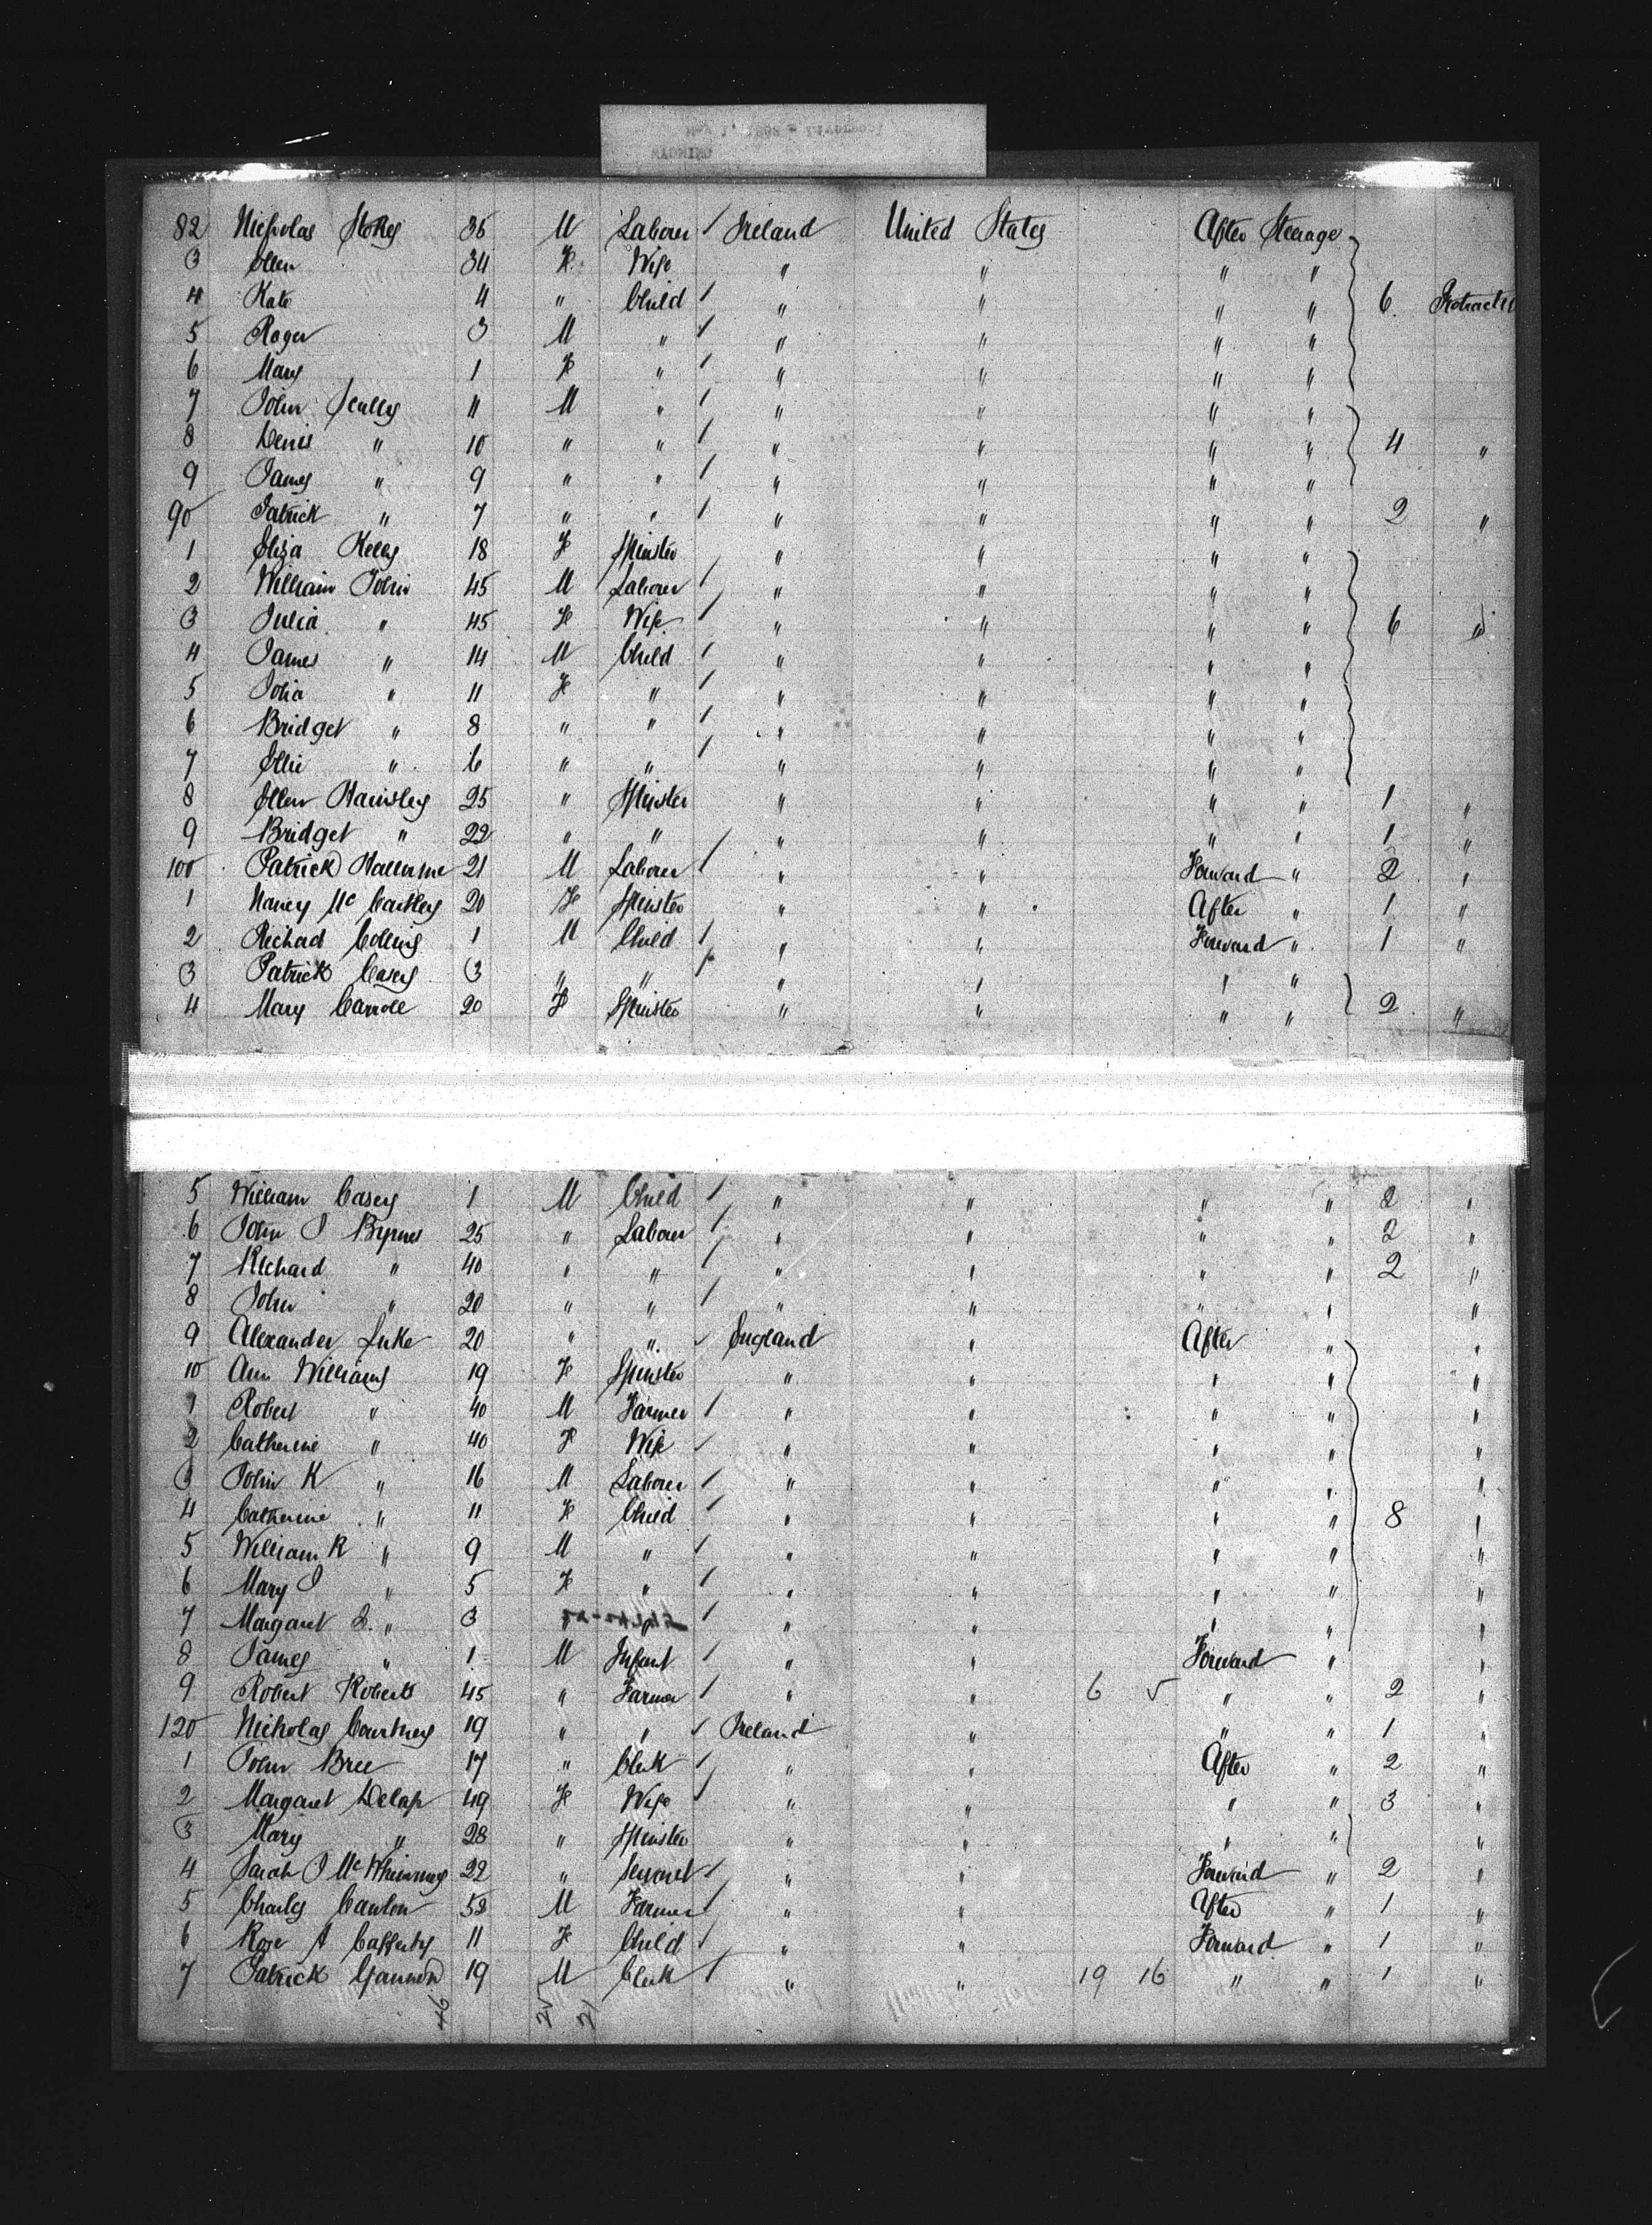 May 1, 1898 - Liverpool
WYOMING
82 Nicholas Stokes 35 M Laborer / Ireland United States After Steerage
3 Ellen 34 F Wife " " " "
4 Kate 4 " Child / " " " " 6. Protracted
5 Roger 3 M " / " " " "
6 Mary 1 F " / " " " "
7 John Scully 11 M " / " " " "
8 Denis " 10 " " / " " " " 4 "
9 James " 9 " " / " " " "
90 Patrick " 7 " " / " " " " 2 "
1 Eliza Kelly 18 F Spinster " " " "
2 William Tobin 45 M Laborer / " " " "
3 Julia " 45 F Wife / " " " " 6 "
4 James " 14 M Child / " " " "
5 Joha " 11 F " / " " " "
6 Bridget " 8 " " / " " " "
7 Ellie " 6 " " / " " " "
8 Ellen Hainsley 25 " Spinster " " " " 1 "
9 Bridget " 22 " " / " " " " 1 "
100 Patrick 21 M Laborer / " " Forward " 2 "
1 Nancy Mc Carthy 20 F Spinster " " After " 1 "
2 Richard Collins 1 M Child / " " Forward " 1 "
3 Patrick Casey 3 " " / " " " "
4 Mary Carroll 20 F Spinster " " " " 2 "
5 William Casey 1 M Child / " " " " 2 "
6 John J Byrnes 25 " Laborer / " " " " 2 "
7 Richard " 40 " " / " " " " 2 "
8 John " 20 " " / " " " " "
9 Alexander Luke 20 " " / England " After " "
10 Ann Williams 19 F Spinster " " " " "
1 Robert " 40 M Farmer / " " " " "
2 Catherine " 40 F Wife / " " " " "
3 John K " 16 M Laborer / " " " " "
4 Catherine " 11 F Child / " " " " 8 "
5 William R " 9 M " / " " " " "
6 Mary J " 5 F " / " " " " "
7 Margaret " 3 / " " " " "
8 James " 1 M Infant / " " Forward " "
9 Robert Roberts 45 " Farmer / " " 6 5 " " 2 "
120 Nicholas Courtney 19 " " / Ireland " " " 1 "
1 John Bree 17 " Clerk / " " After " 2 "
2 Margaret Delap 49 F Wife / " " " " 3 "
3 Mary " 28 " Spinster " " " " "
4 Sarah J McWhinney 22 " Servant / " " Forward " 2 "
5 Charles Canlon 52 M Farmer / " " After " 1 "
6 Rose A Cafferty 11 F Child / " " Forward " 1 "
7 Patrick Gannon 19 M Clerk / " " 19 16 " " 1 "
46 25 21